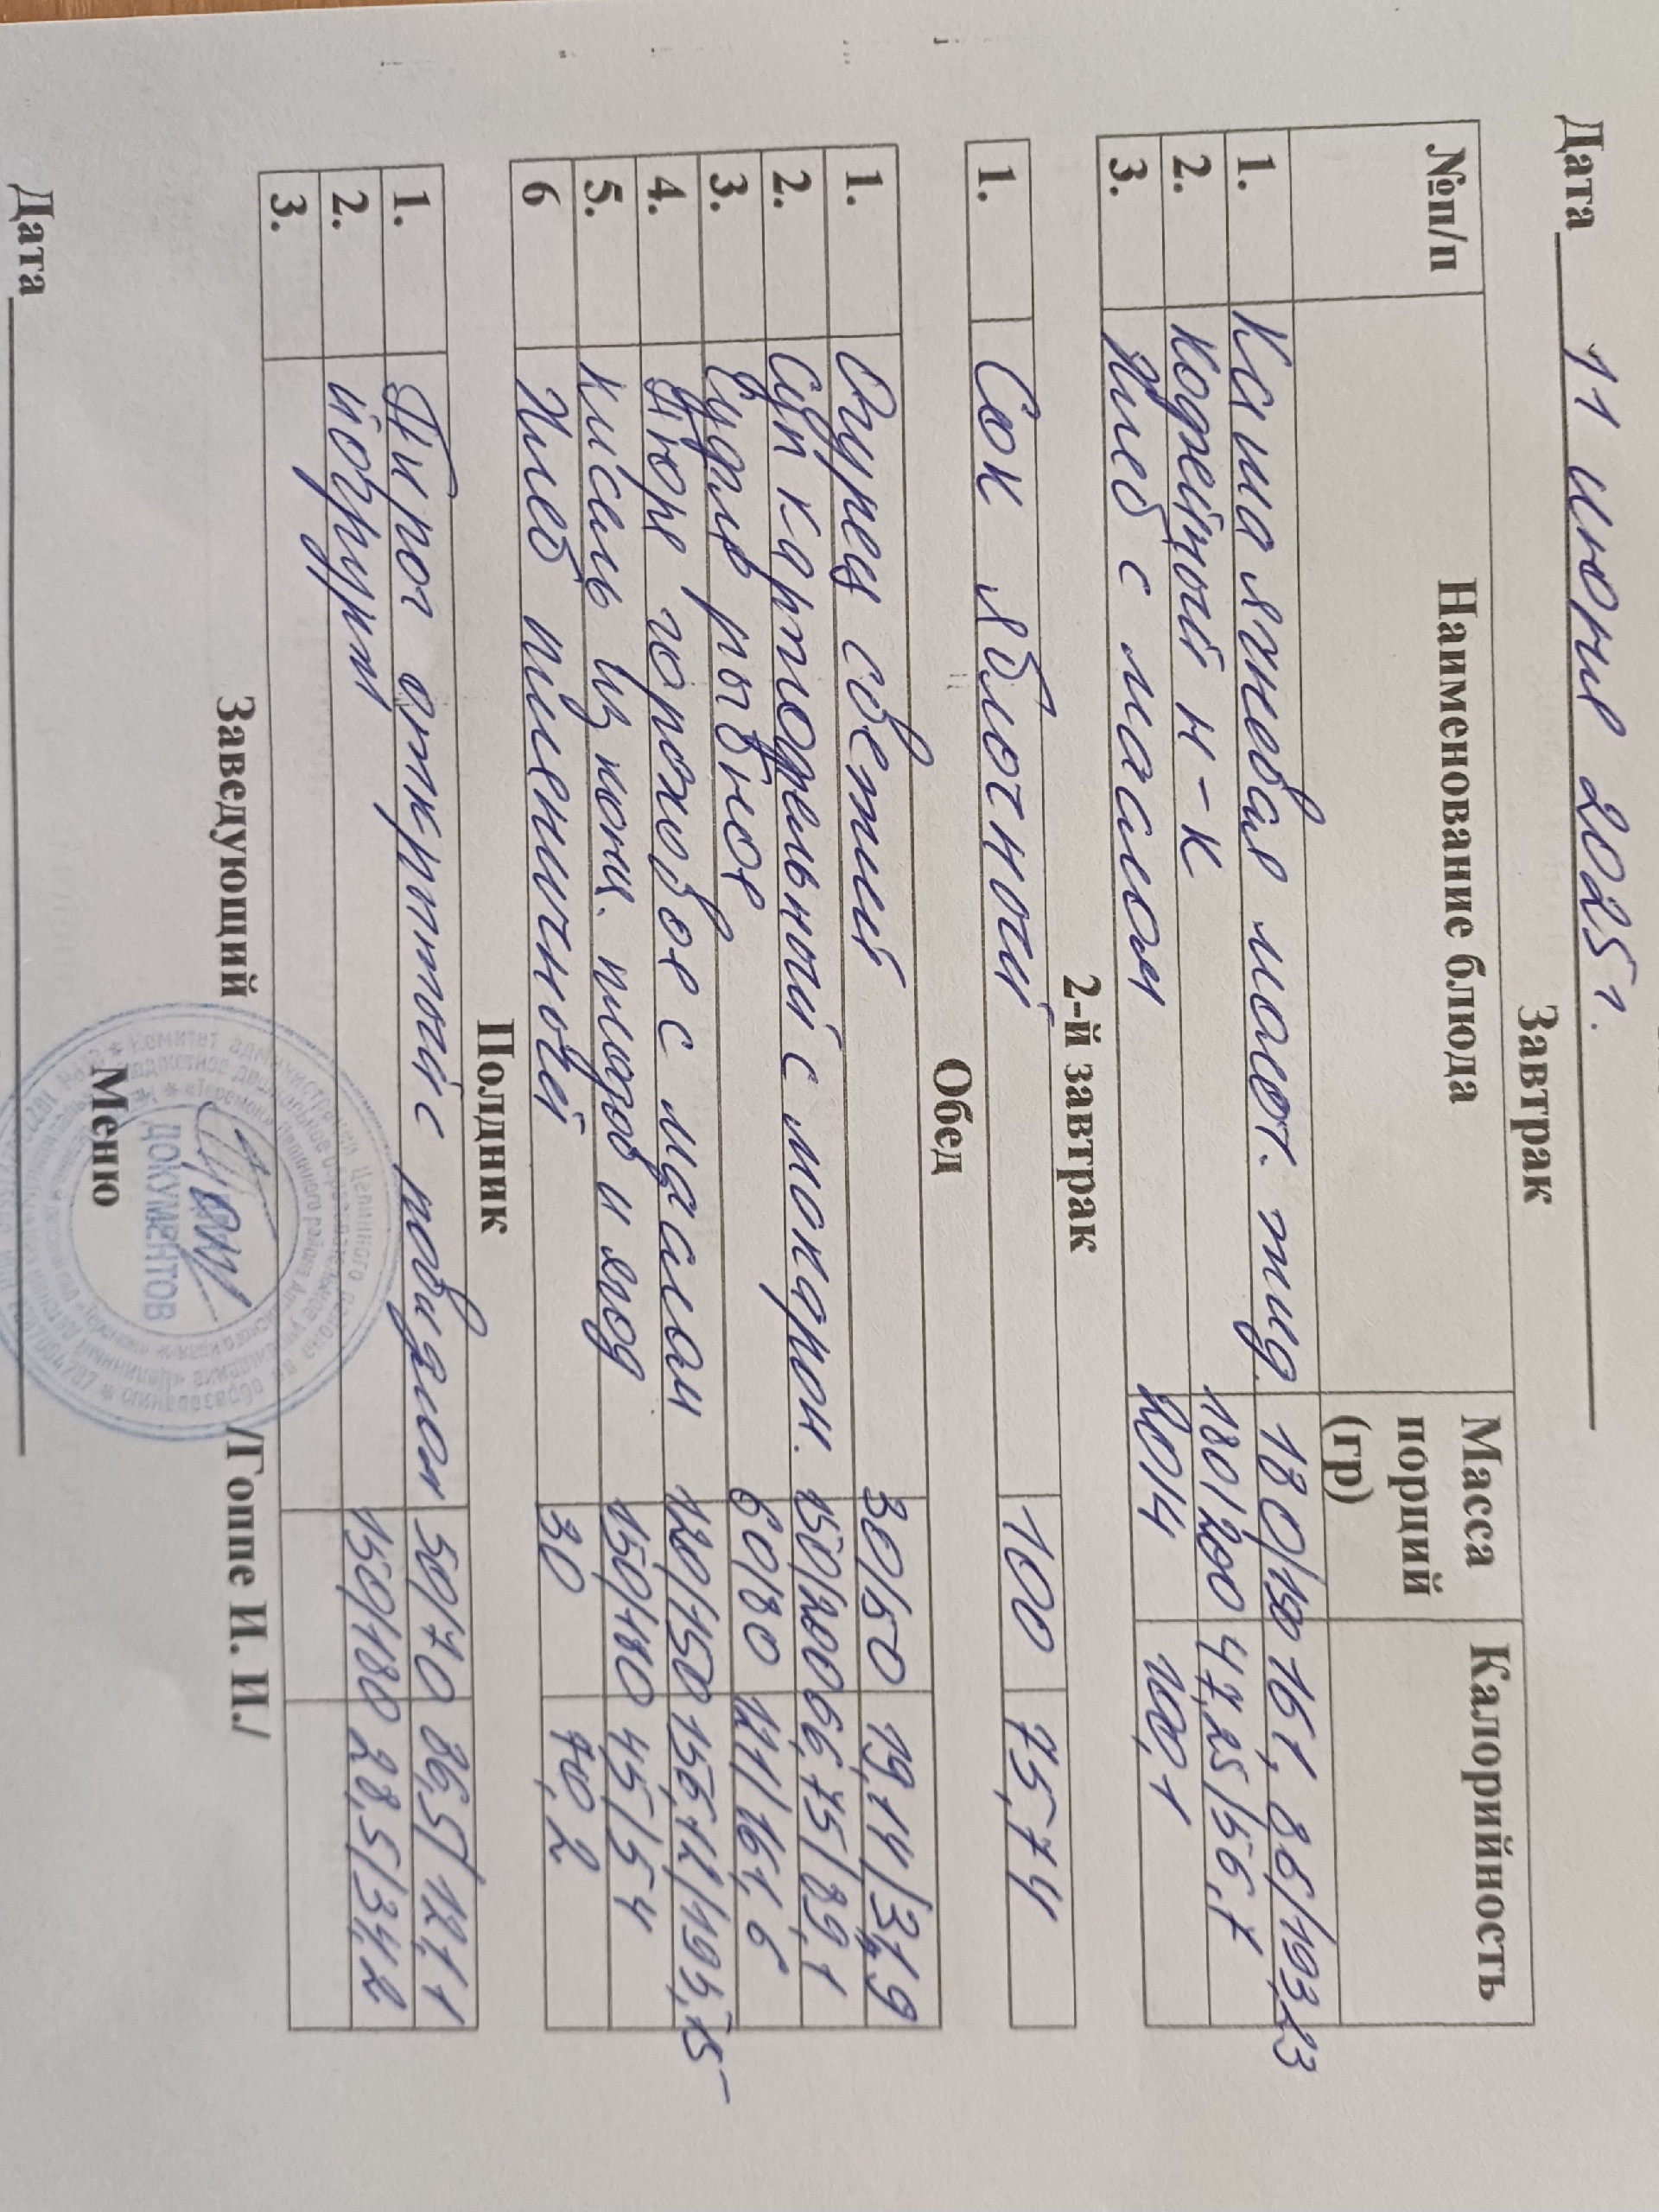 Дата 11 июня 2025 г.
Завтрак
№п/п Наименование блюда Масса порций (гр) Калорийность
1. Каша ячневая молоч. жид. 130/150 161,86/193,23
2. Кофейный н-к 180/200 47,25/56,7
3. Хлеб с маслом 30/4 100,1
2-й завтрак
1. Сок яблочный 100 75,74
Обед
1. Огурец свежий 30/50 19,14/31,9
2. Суп картофельный с макарон. 150/200 66,75/89,1
3. Суфле рыбное 60/80 121/161,6
4. Пюре гороховое с маслом 120/150 156,12/195,15
5. Кисель из конц. плодов и ягод 150/180 45/54
6 Хлеб пшеничный 30 70,2
Полдник
1. Пирог открытый с повидлом 50/70 86,5/121,1
2. йогрурт 150/180 28,5/34,2
3.
Заведующий /Гоппе И. И./
ДОКУМЕНТОВ
Меню
Дата